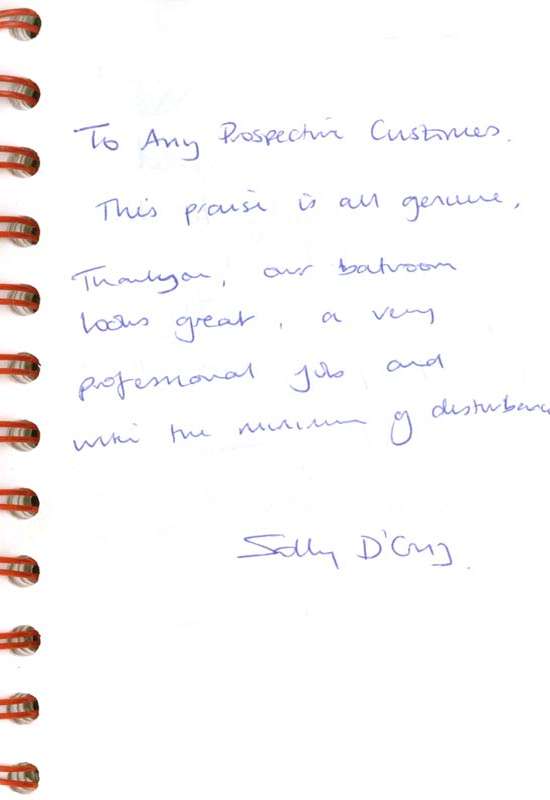 To Any Prospective Customers.
This praise is all genuine,
Thankyou, our batroom
looks great, a very
professional job and
with the minimum of disturbanc
Sally D'Cruz.